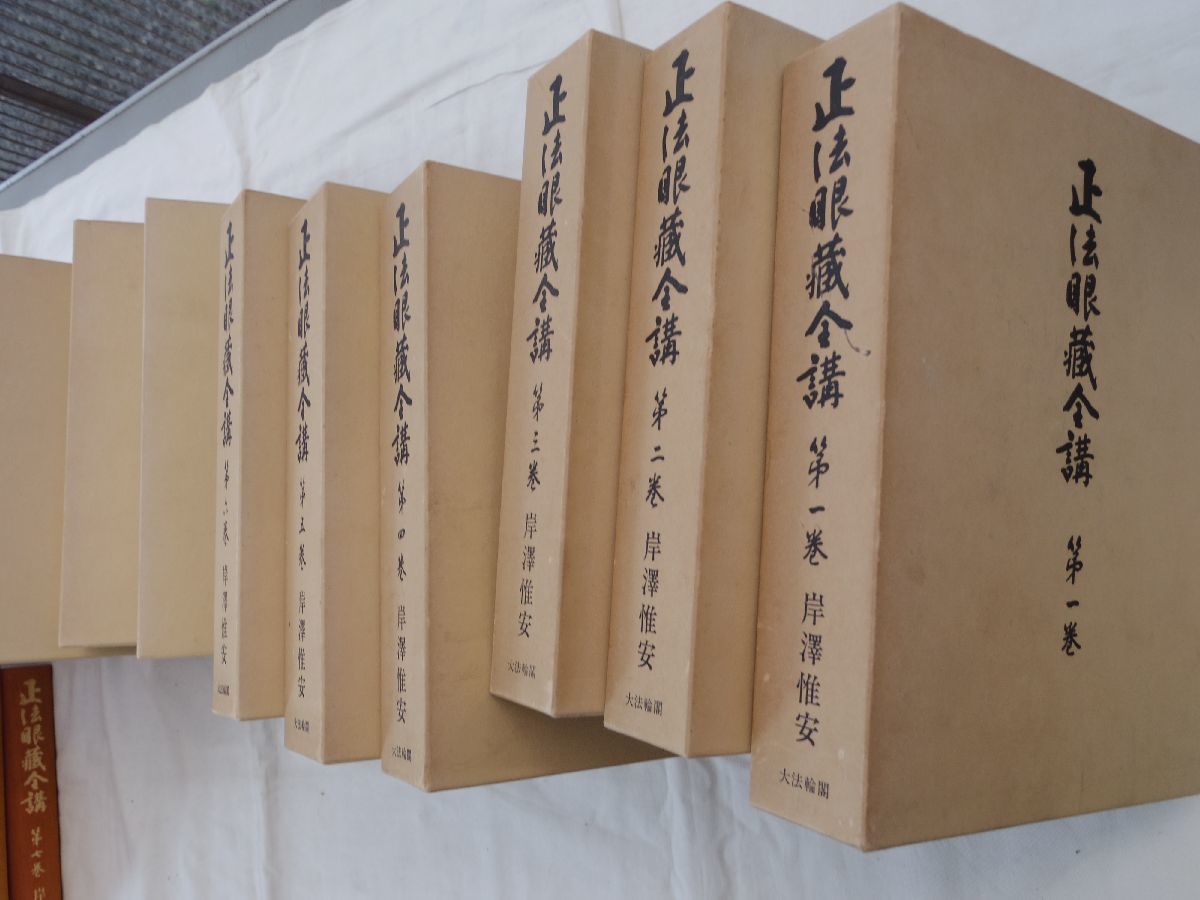 正法眼藏全講 第一巻
正法眼藏全講 第一巻 岸澤惟安
大法輪閣
正法眼藏全講 第二巻 岸澤惟安
大法輪閣
正法眼藏全講 第三巻 岸澤惟安
大法輪閣
正法眼藏全講 第四巻 岸澤惟安
大法輪閣
正法眼藏全講 第五巻 岸澤惟安
大法輪閣
正法眼藏全講 第六巻 岸澤惟安
大法輪閣
正法眼藏全講 第七巻 岸